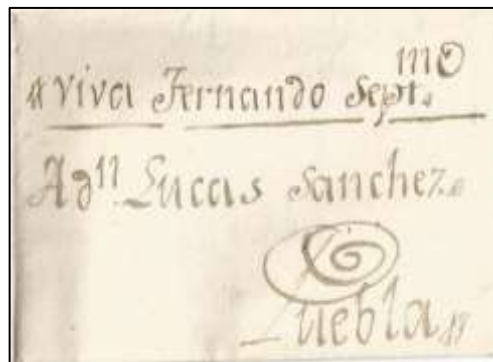 viva Fernando Sept.mo
A dn Lucas Sanchez.
Puebla